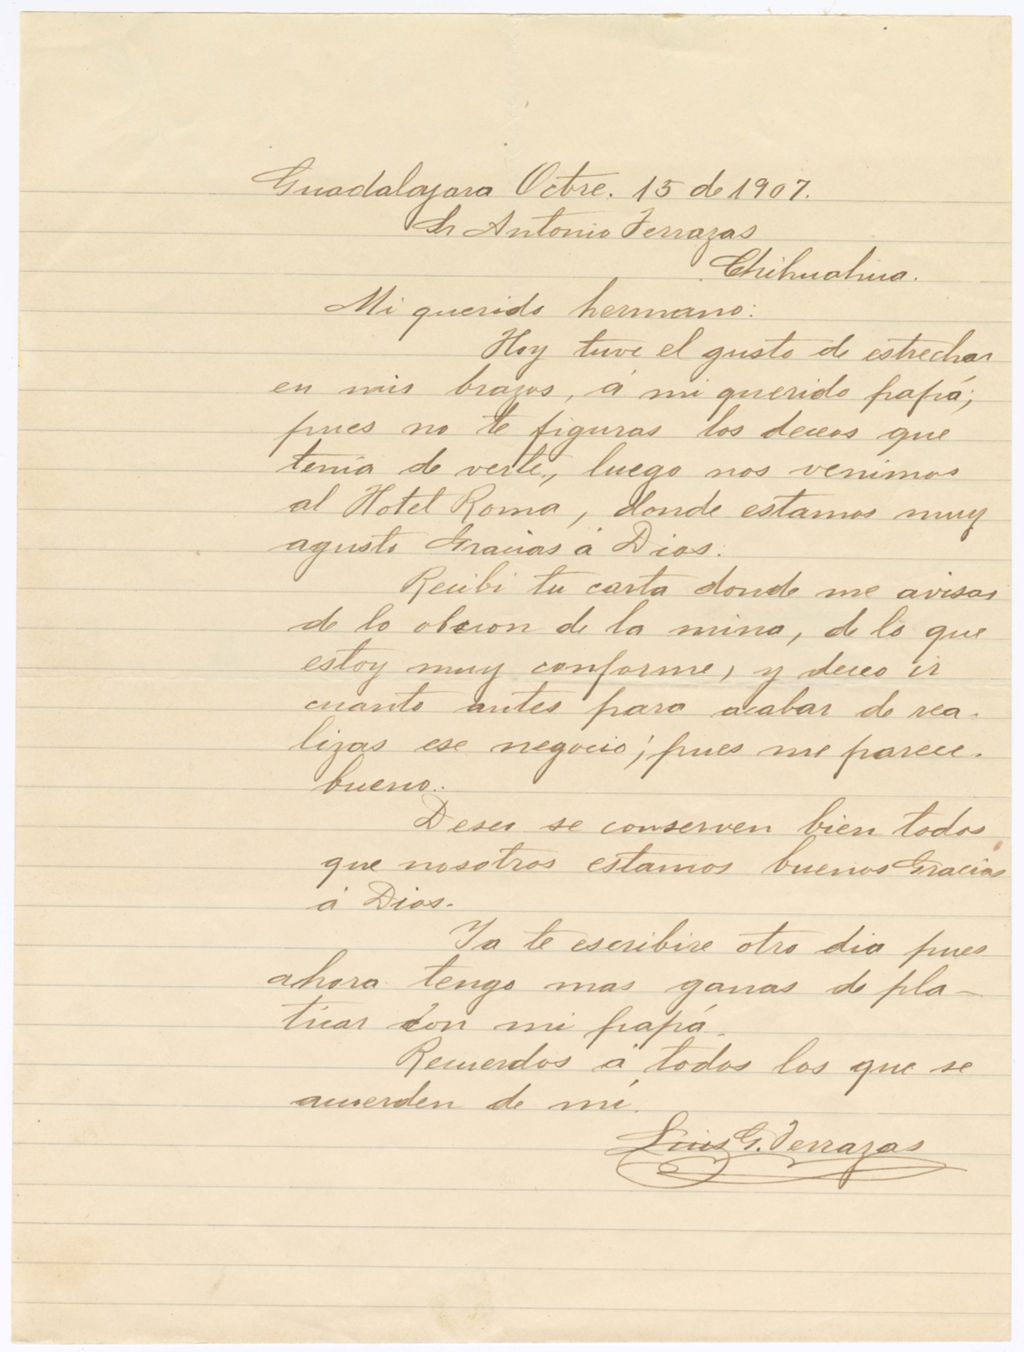 Guadalajara Octre. 15 de 1907.
Sr Antonio Terrazas
Chihuahua.
Mi querido hermano:
Hoy tuve el gusto de estrechar
en mis brazos, á mi querido papá;
pues no te figuras los deceos que
tenia de verle, luego nos venimos
al Hotel Roma, donde estamos muy
agusto Gracias á Dios.
Recibi tu carta donde me avisas
de lo obcion de la mina, de lo que
estoy muy conforme, y deceo ir
cuanto antes para acabar de rea-
lizas ese negocio; pues me parece.
bueno.
Deseo se conserven bien todos
que nosotros estamos buenos Gracias
á Dios.
Ya te escribire otro dia pues
ahora tengo mas ganas de pla-
ticar con mi papá.
Recuerdos á todos los que se
acuerden de mí.
Luis G. Terrazas